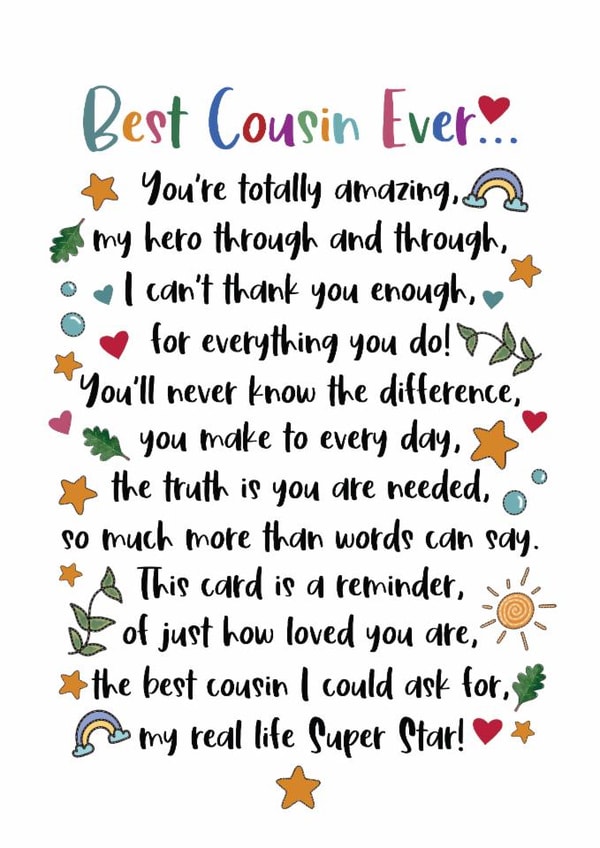 Best Cousin Ever...
You're totally amazing,
my hero through and through,
I can't thank you enough,
for everything you do!
You'll never know the difference,
you make to every day,
the truth is you are needed,
so much more than words can say.
This card is a reminder,
of just how loved you are,
the best cousin I could ask for,
my real life Super Star!